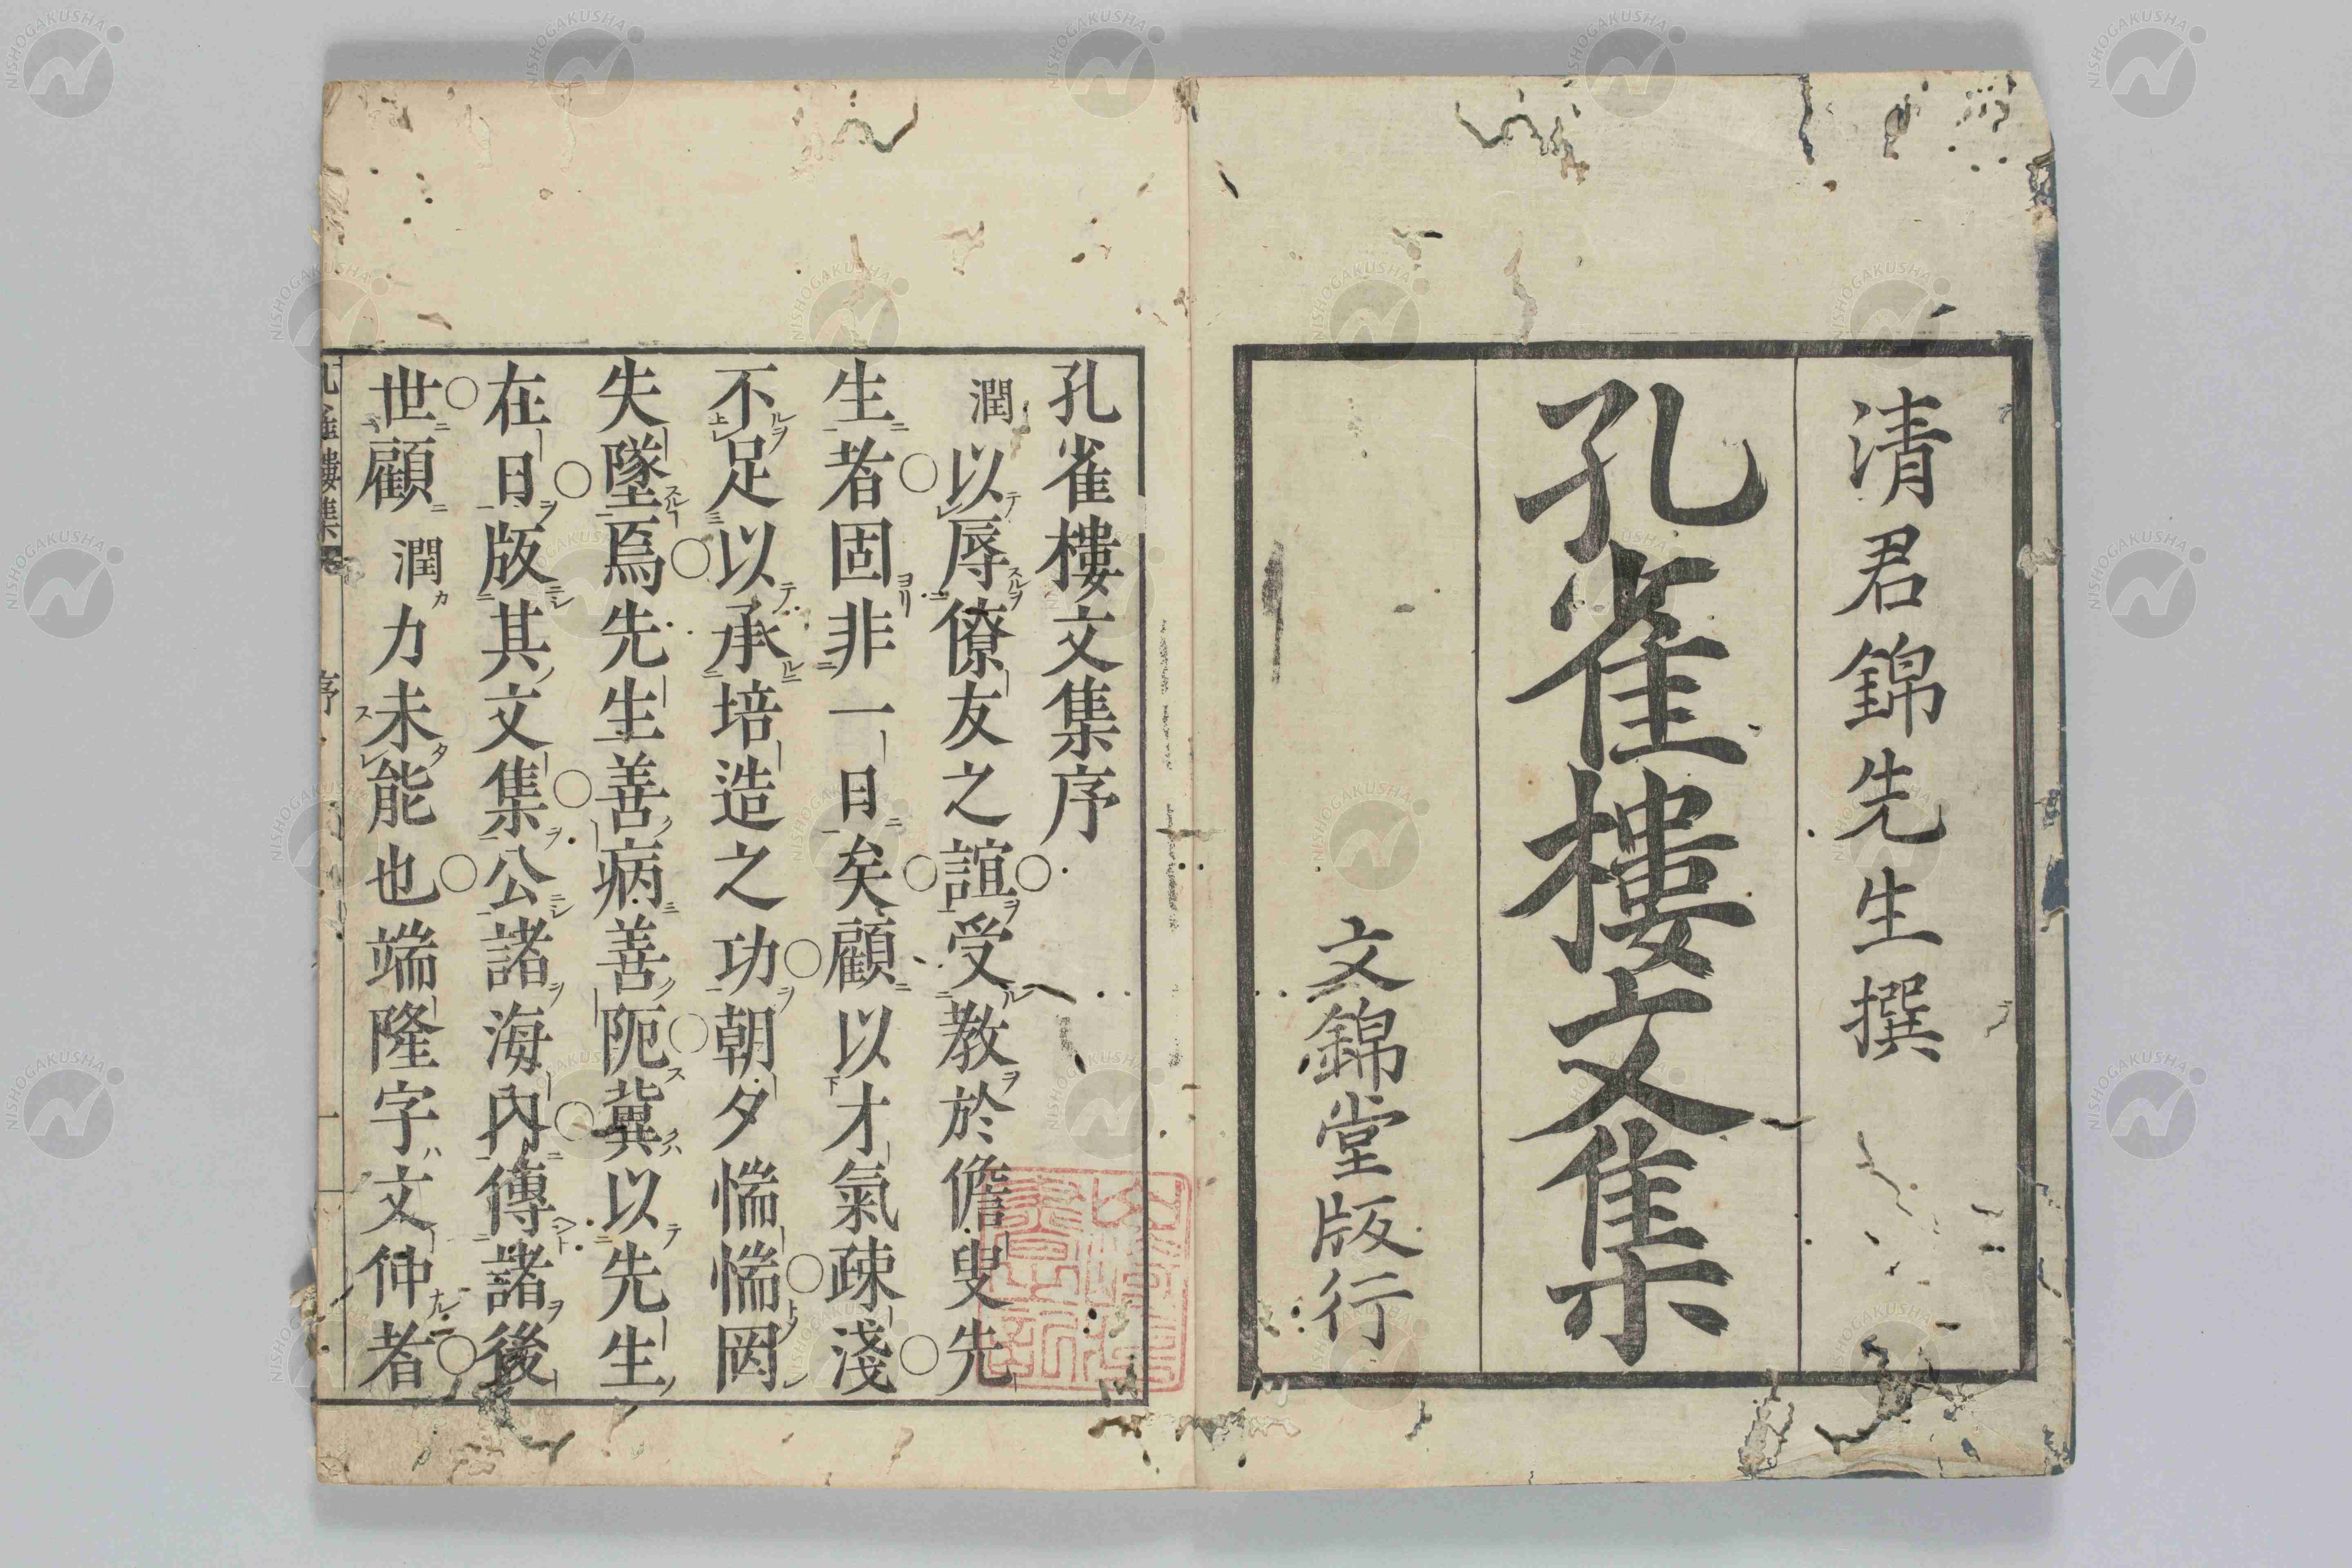 清君錦先生撰
孔雀樓文集
文錦堂版行
孔雀樓文集序
潤以辱僚友之誼受教於儋叟先
生者固非一日矣顧以才氣疎淺
不足以承培造之功朝夕惴惴罔
失墜焉先生善病善阨冀以先生
在日版其文集公諸海內傳諸後
世顧潤力未能也端隆字文仲者
孔雀樓集
序
一
NISHOGAKUSHA